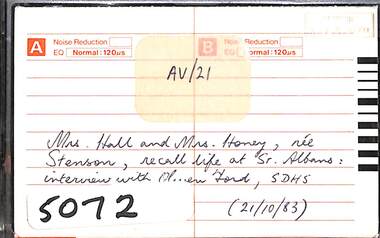 A Noise Reduction B Noise Reduction
EQ Normal: 120us EQ Normal: 120us
AV/21
Mrs. Hall and Mrs. Honey, née
Stenson, recall life at St. Albans:
interview with Ford, SDHS
5072 (21/10/83)